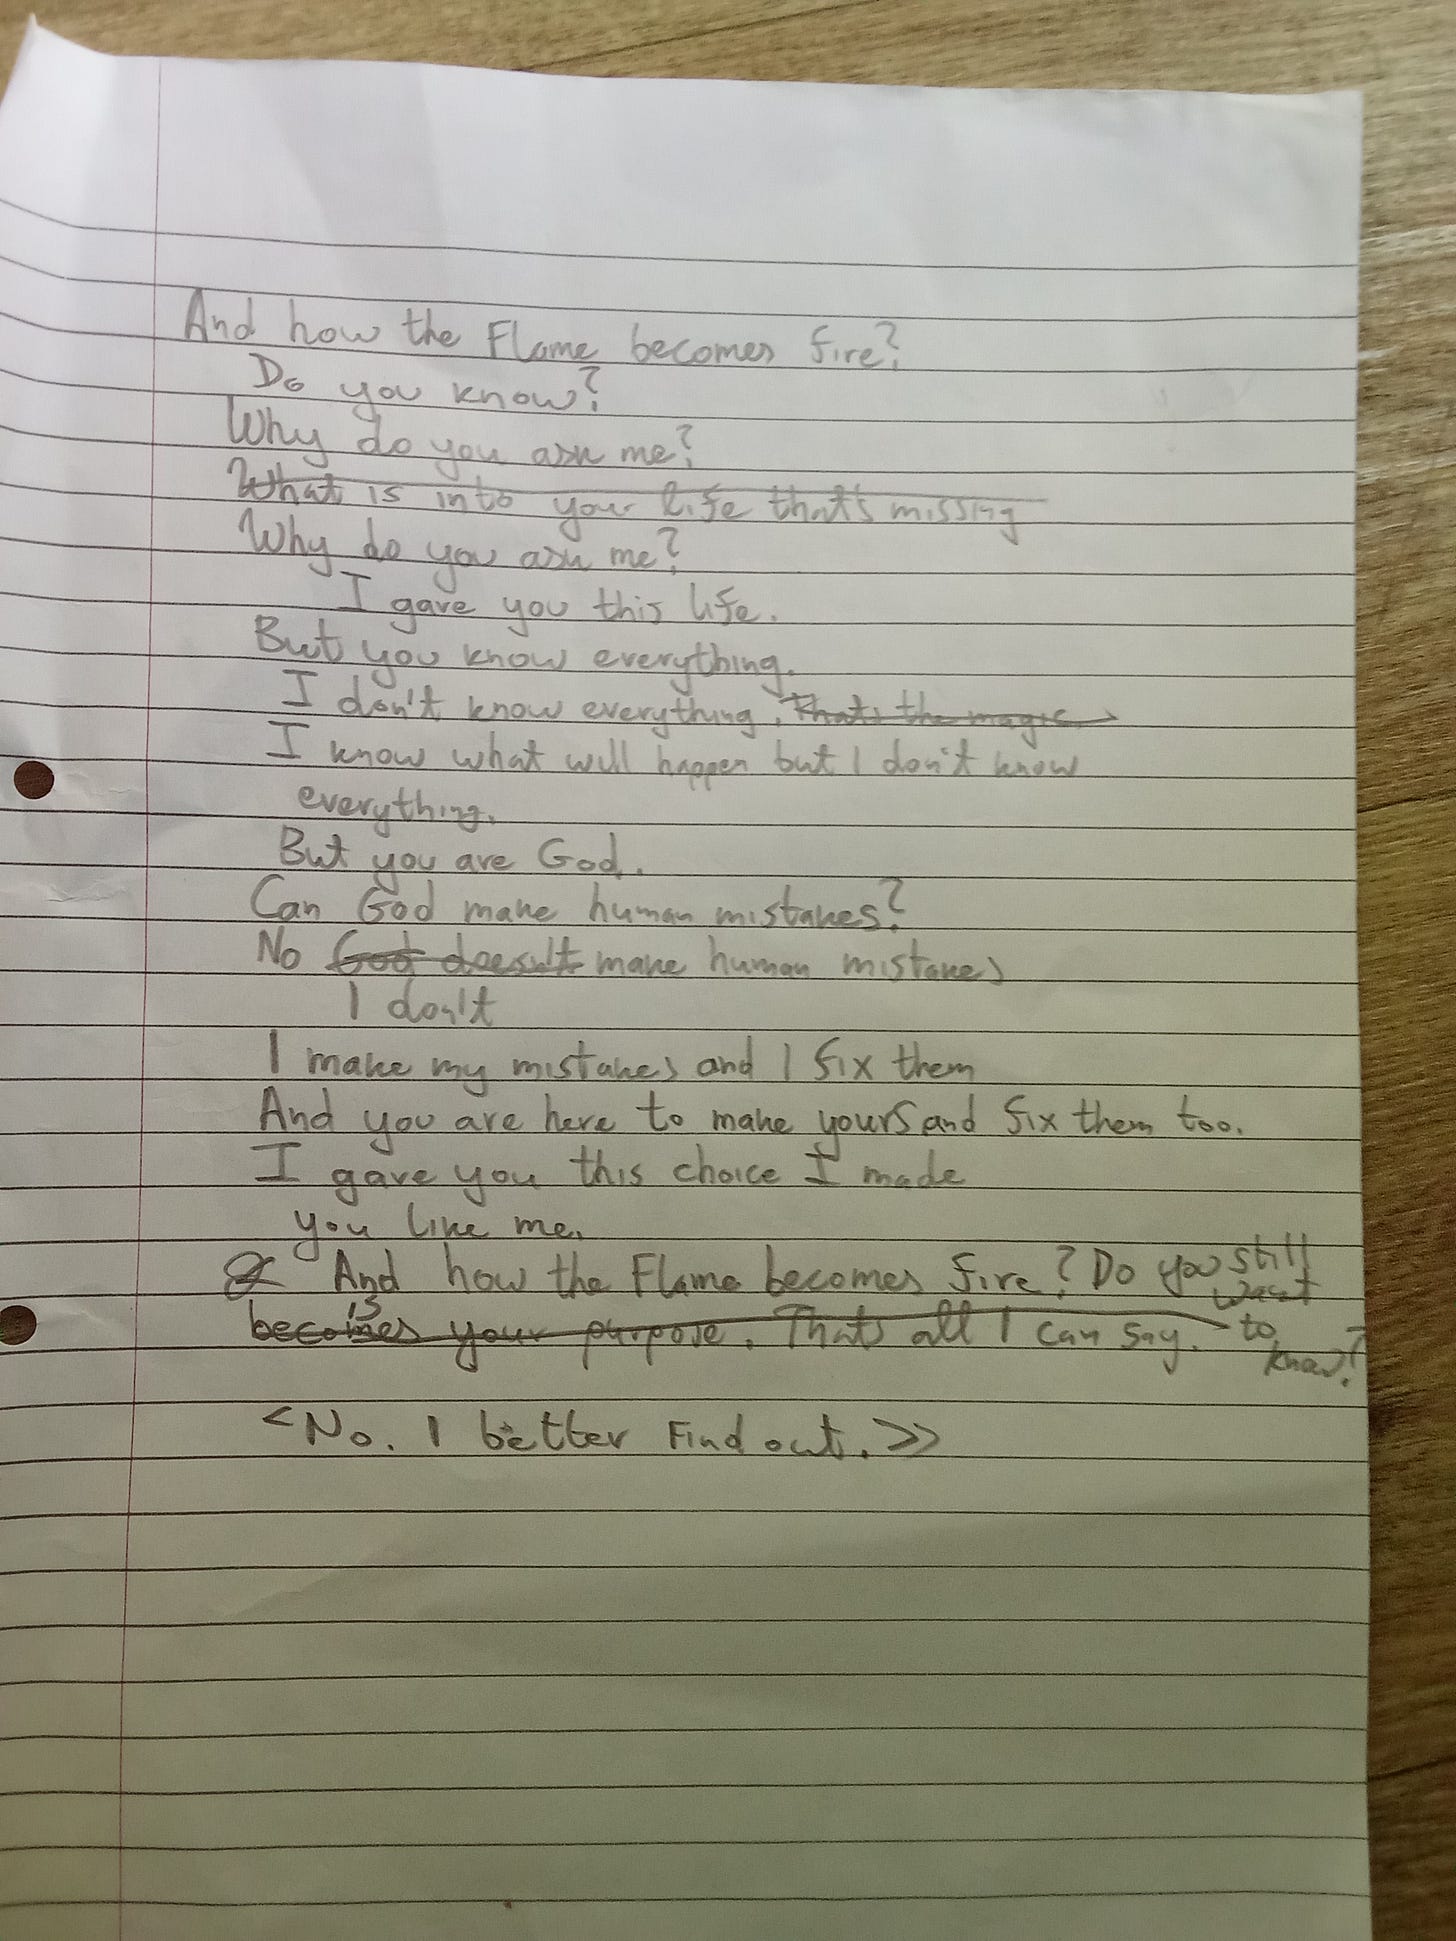 And how the Flame becomes fire?
Do you know?
Why do you ask me?
What is into your life that's missing
Why do you ask me?
I gave you this life.
But you know everything.
I don't know everything. That's the magic
I know what will happen but I don't know
everything.
But you are God.
Can God make human mistakes?
No God doesn't make human mistakes
I don't
I make my mistakes and I fix them
And you are here to make yours and fix them too.
I gave you this choice I made
you like me.
And how the Flame becomes fire? Do you still want
becomes is your purpose. That's all I can say. to know?
<No. I better Find out.>>